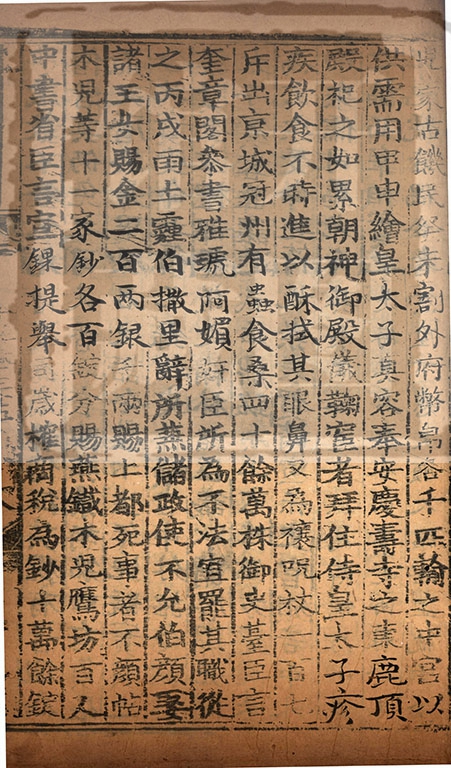 兒家古饑民祭未割外府幣帛各千匹輸之中宮以
供需用甲申繪皇太子真容奉安慶壽寺之東鹿頂
殿祀之如累朝神御殿儀鞠宦者拜住侍皇太子疹
疾飲食不時進以酥拭其眼鼻又為禳呪杖一百七
斥出京城冠州有蟲食桑四十餘萬株御史臺臣言
奎章閣參書雅琥阿媚奸臣所為不法宜罷其職從
之丙戌雨土霾伯撒里辭所燕儲政使不允伯顏妻
諸王女賜金二百兩銀千兩賜上都死事者不顏帖
木兒等十一家鈔各百錠分賜燕鐵木兒鷹坊百人
中書省臣言宣課提舉司歲榷商稅為鈔十萬餘錠